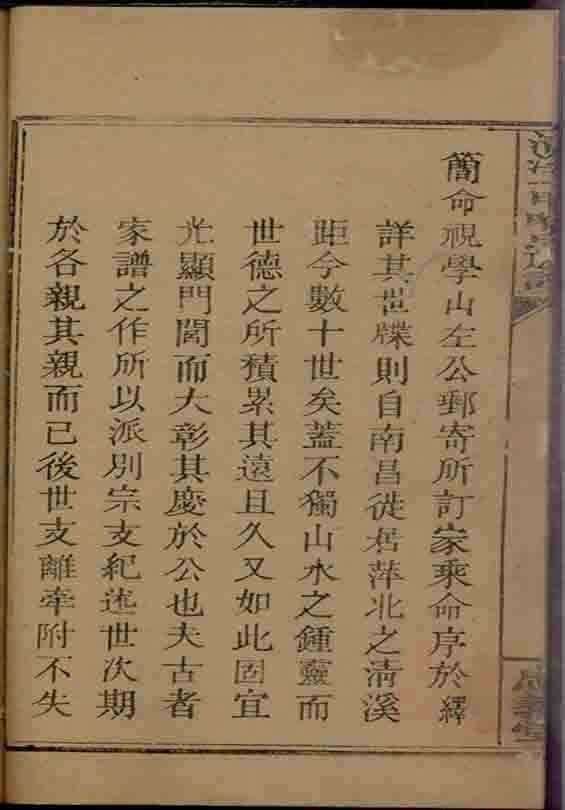 簡命視學山左公郵寄所訂家乘命序於繹
詳其世牒則自南昌徙居萍北之清溪
距今數十世矣蓋不獨山水之鍾靈而
世德之所積累其遠且久又如此固宜
光顯門閭而大彰其慶於公也夫古者
家譜之作所以派別宗支紀述世次期
於各親其親而已後世支離牽附不失